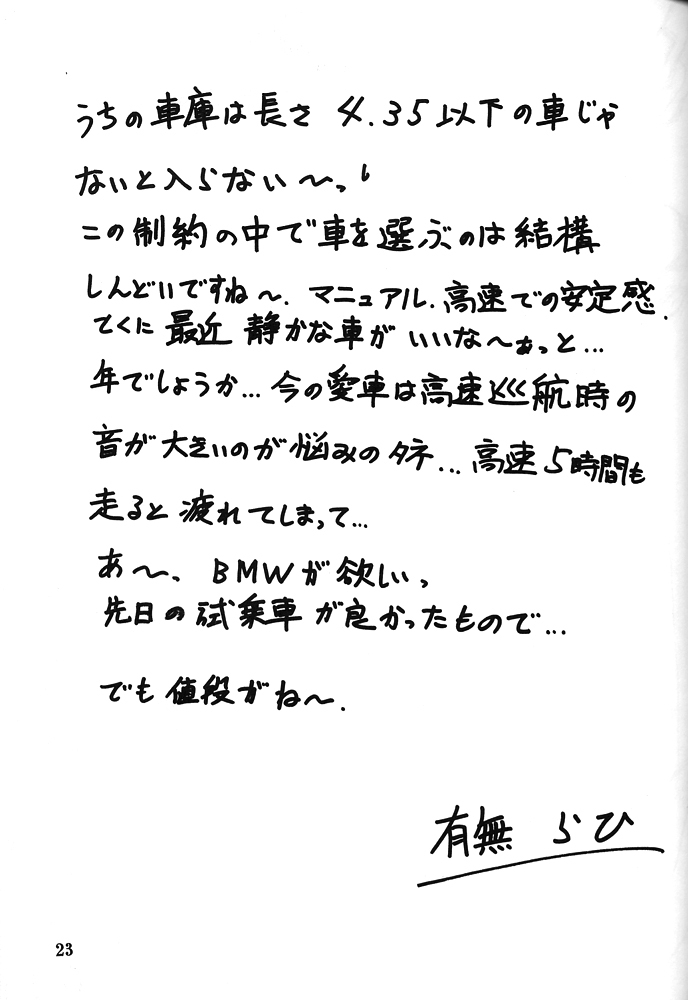 うちの車庫は長さ 4.35以下の車じゃ
ないと入らない〜っ!
この制約の中で車を選ぶのは結構
しんどいですね〜. マニュアル. 高速での安定感.
てくに 最近 静かな車が いいな〜ぁっと...
年でしょうか... 今の愛車は高速巡航時の
音が大きいのが悩みのタネ... 高速5時間も
走ると 疲れてしまって...
あ〜、BMWが欲しいっ
先日の試乗車が良かったもので...
でも値段がね〜.
有無 らひ
23